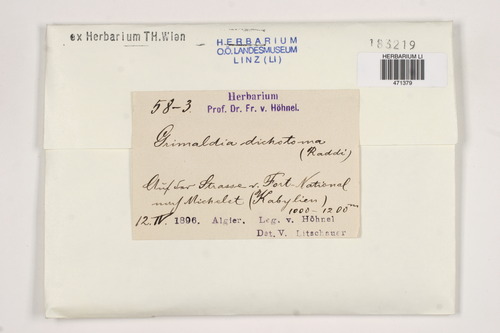 ex Herbarium TH. Wien
HERBARIUM
O.Ö. LANDESMUSEUM
LINZ (LI)
183219
HERBARIUM LI
471379
58-3.
Herbarium
Prof. Dr. Fr. v. Höhnel.
Grimaldia dichotoma
(Raddi)
Auf der Strasse v. Fort-National
nach Michelet (Kabylien)
1000-1200m
12. IV. 1896. Algier. Leg. v. Höhnel
Det. V. Litschauer